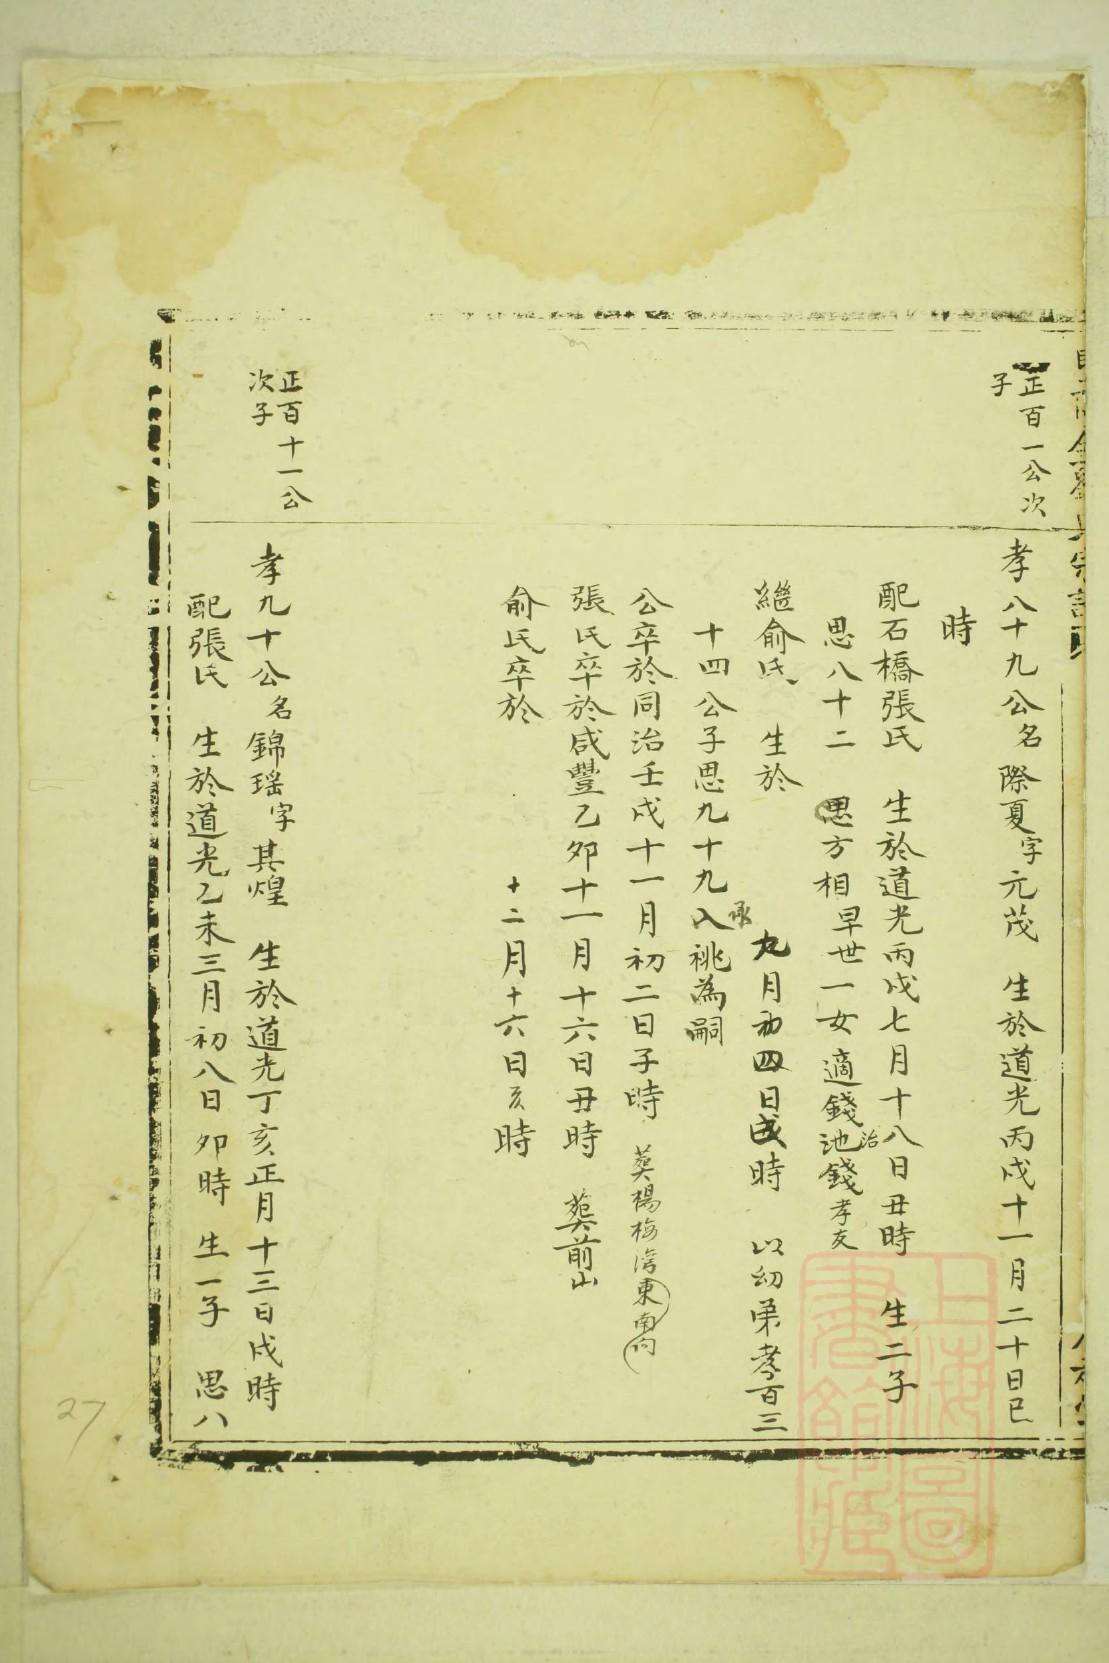 正百一公次
子
孝八十九公名際夏字元茂　生於道光丙戌十一月二十日巳
時
配石橋張氏　生於道光丙戌七月十八日丑時　生二子
思八十二　思方相早世一女適錢池治錢孝友
繼俞氏　生於　九月初四日戌時　以幼弟孝百三
十四公子思九十九入承祧為嗣
公卒於同治壬戌十一月初二日子時　葬楊梅灣東南向
張氏卒於咸豐乙卯十一月十六日丑時　葬前山
俞氏卒於　十二月十六日亥時
正百十一公
次子
孝九十公名錦瑶字其煌　生於道光丁亥正月十三日戌時
配張氏　生於道光乙未三月初八日卯時　生一子　思八
上海圖
書館藏
27